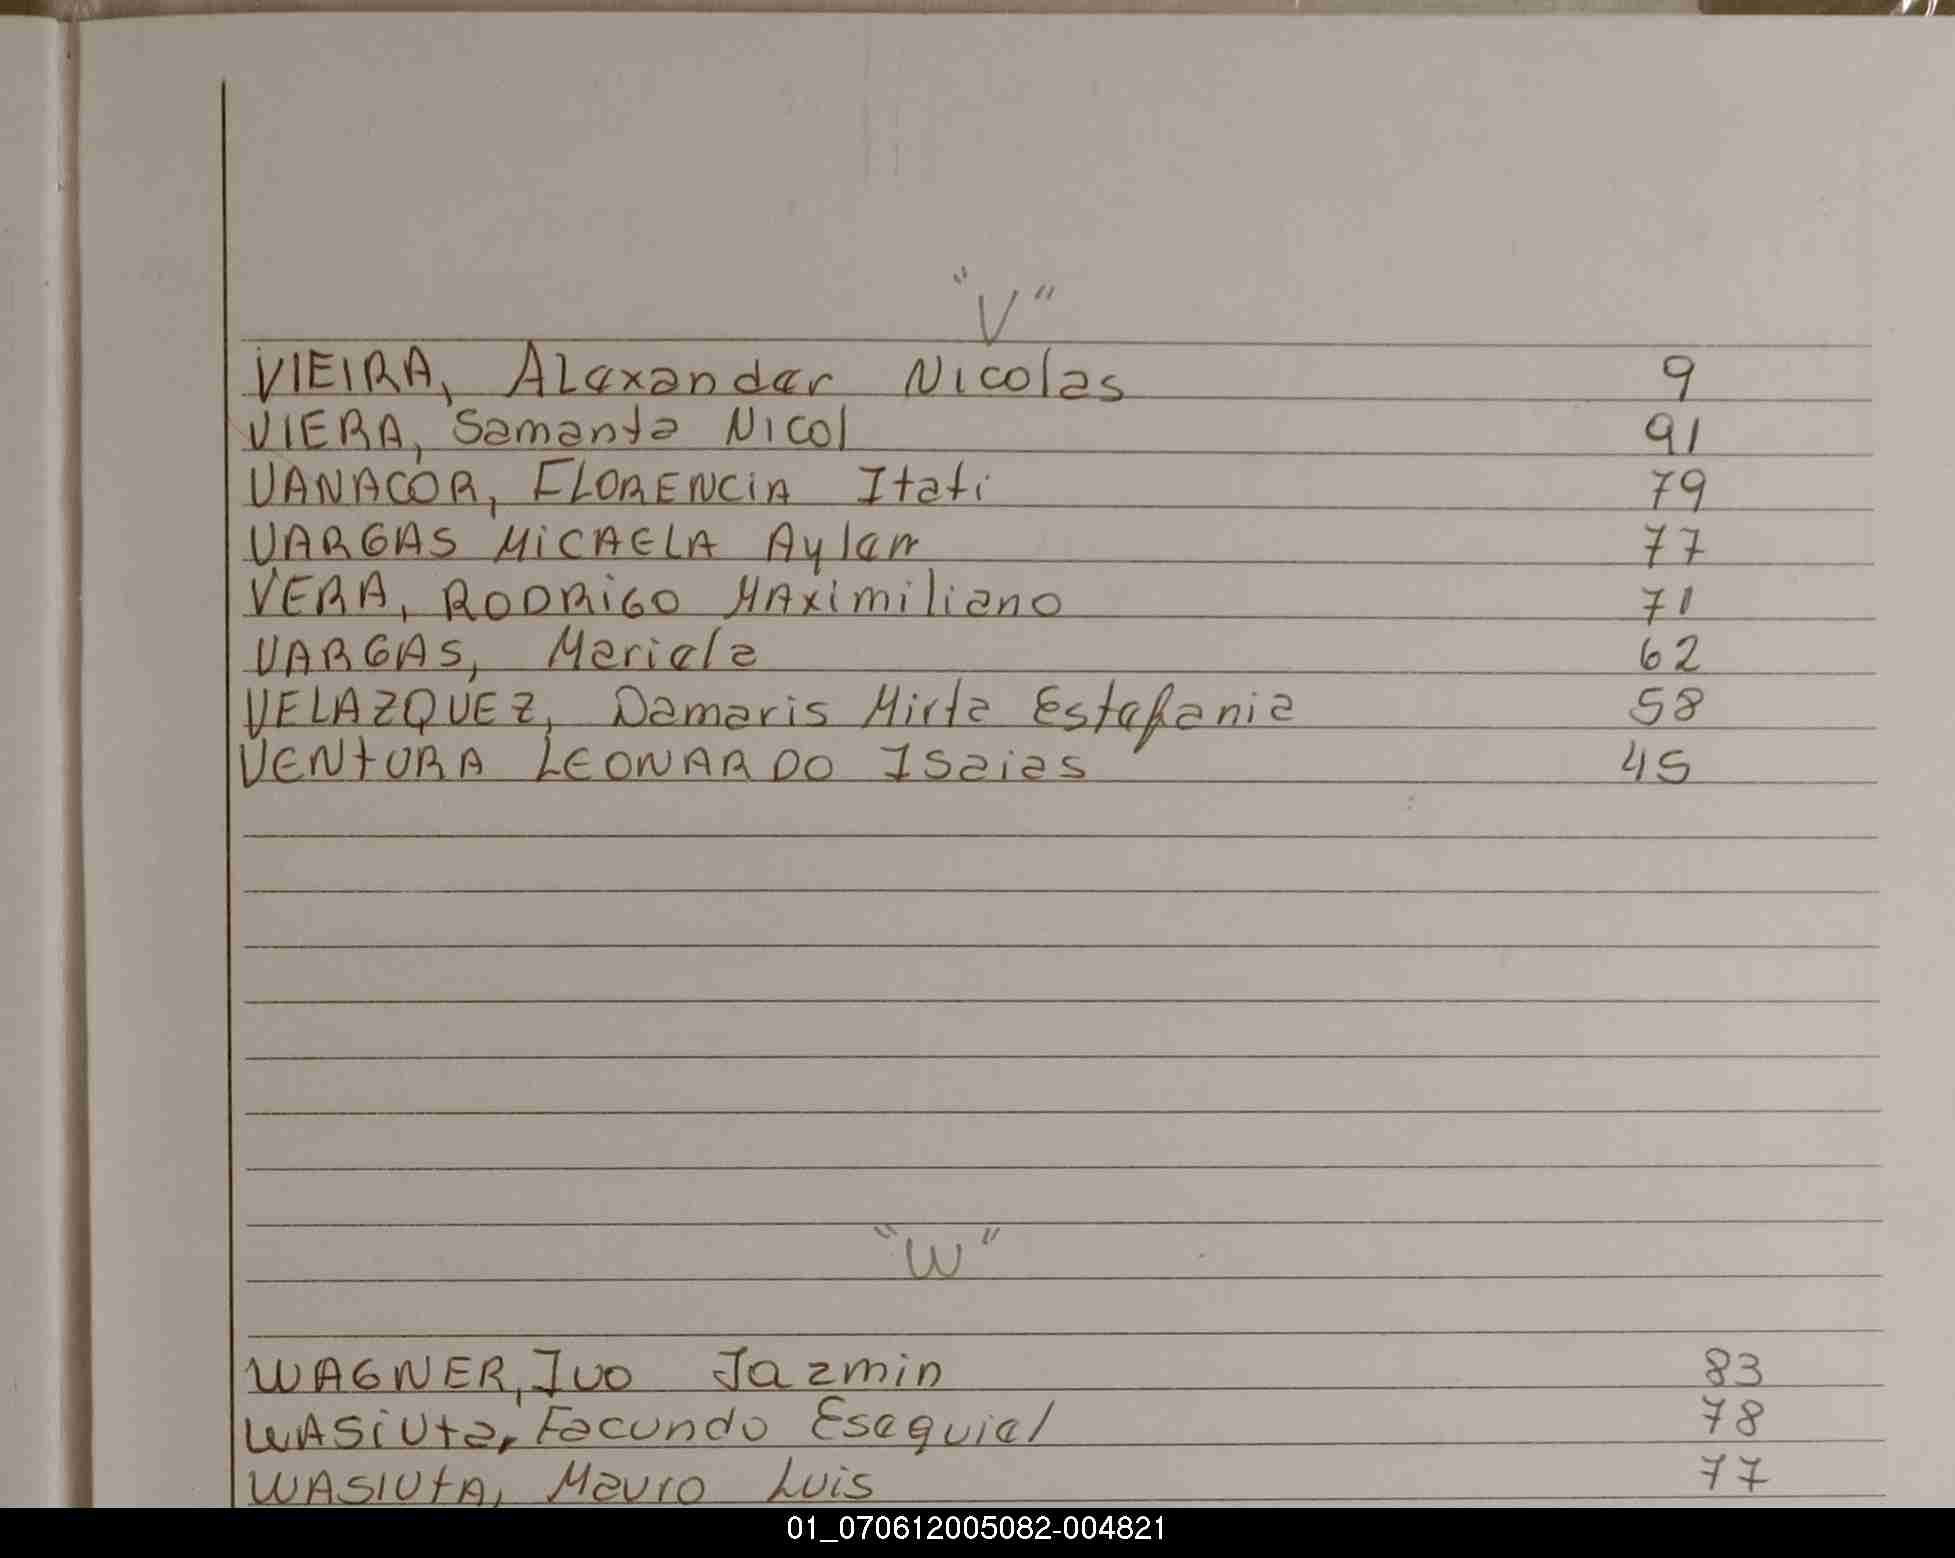 "V"
VIEIRA, Alexander Nicolas 9
VIERA, Samanta Nicol 91
VANACOR, FLORENCIA Itati 79
VARGAS MICAELA Aylen 77
VERA, RODRIGO MAximiliano 71
VARGAS, Mariela 62
VELAZQUEZ, Damaris Mirta Estefania 58
VENtURA LEONARDO Isaias 45
"W"
WAGNER, Ivo Jazmin 83
WASiUta, Facundo Esequiel 78
WASIUtA, Mauro Luis 77
01_070612005082-004821